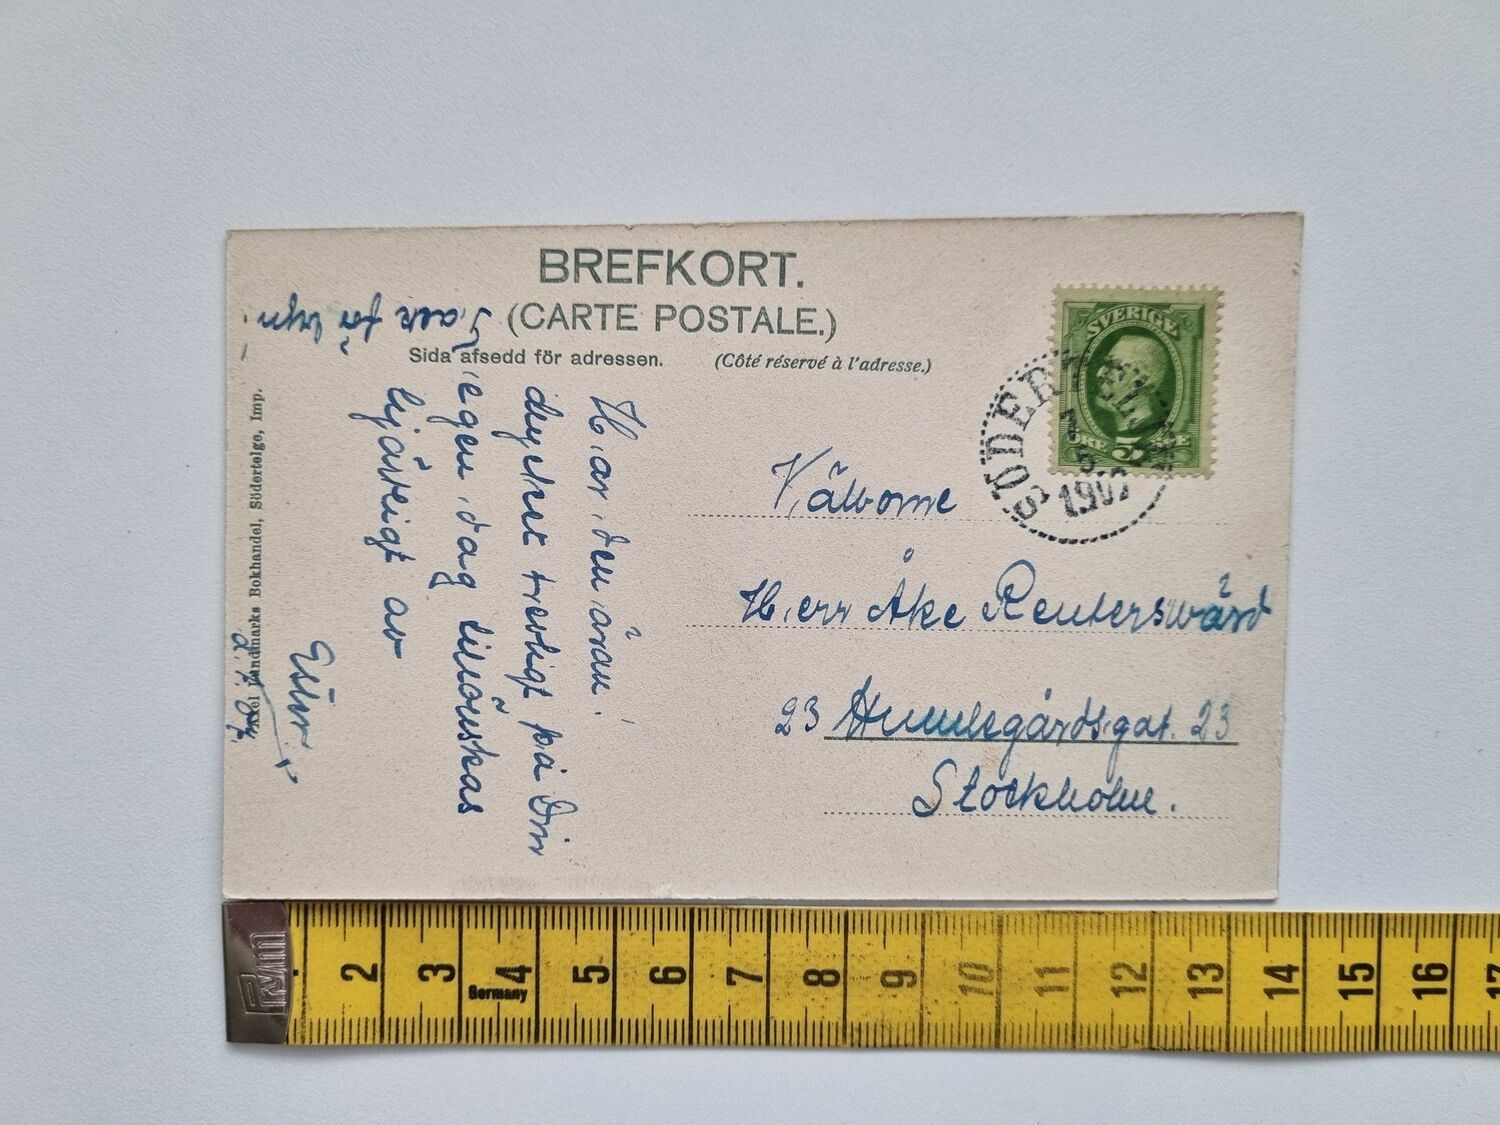 BREFKORT.
(CARTE POSTALE.)
Sida afsedd för adressen. (Côté réservé à l'adresse.)
SVERIGE
ÖRE 5 ÖRE
SÖDERTELGE
7
5
1907
Välborne
Herr Åke Reuterswärd
23 Humlegårdsgat. 23
Stockholm.
Har den äran!
mycket trevligt på Din
egen dag tillönskas
hjärtligt av
Ester
Tack för
Axel Landmarks Bokhandel, Södertelge, Imp.
Prym
Germany
2 3 4 5 6 7 8 9 10 11 12 13 14 15 16 17